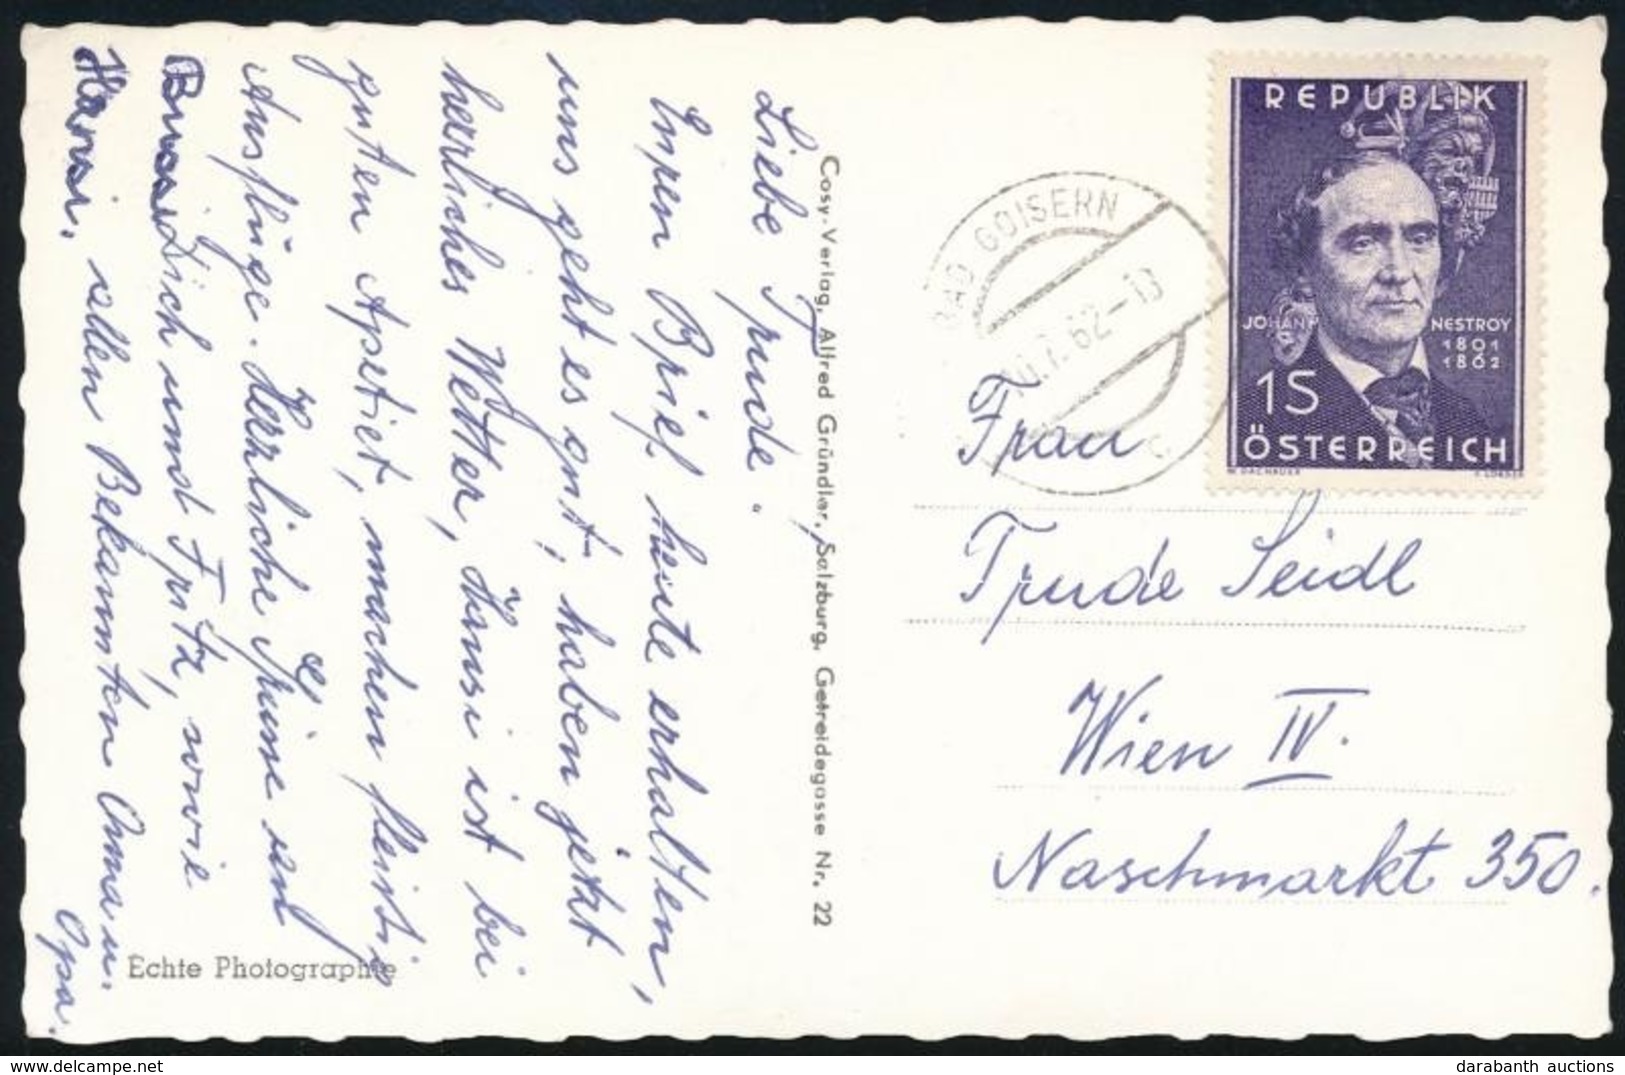 Liebe Trude.
Euren Brief heute erhalten,
uns geht es gut, haben jetzt
herrliches Wetter, Hansi ist bei
guten Apetiet, machen fleisig
Ausflüge. Herrliche Grüsse an
Dich und Fritz, sowie
Hansi. allen Bekannten Oma u.
Opa.
Echte Photographie
Cosy-Verlag, Alfred Gründler, Salzburg, Getreidegasse Nr. 22
BAD GOISERN
10.7.62-18
c
REPUBLIK
JOHANN NESTROY
1801
1862
1S
ÖSTERREICH
Frau
Trude Seidl
Wien IV.
Naschmarkt 350.
darabanth auctions